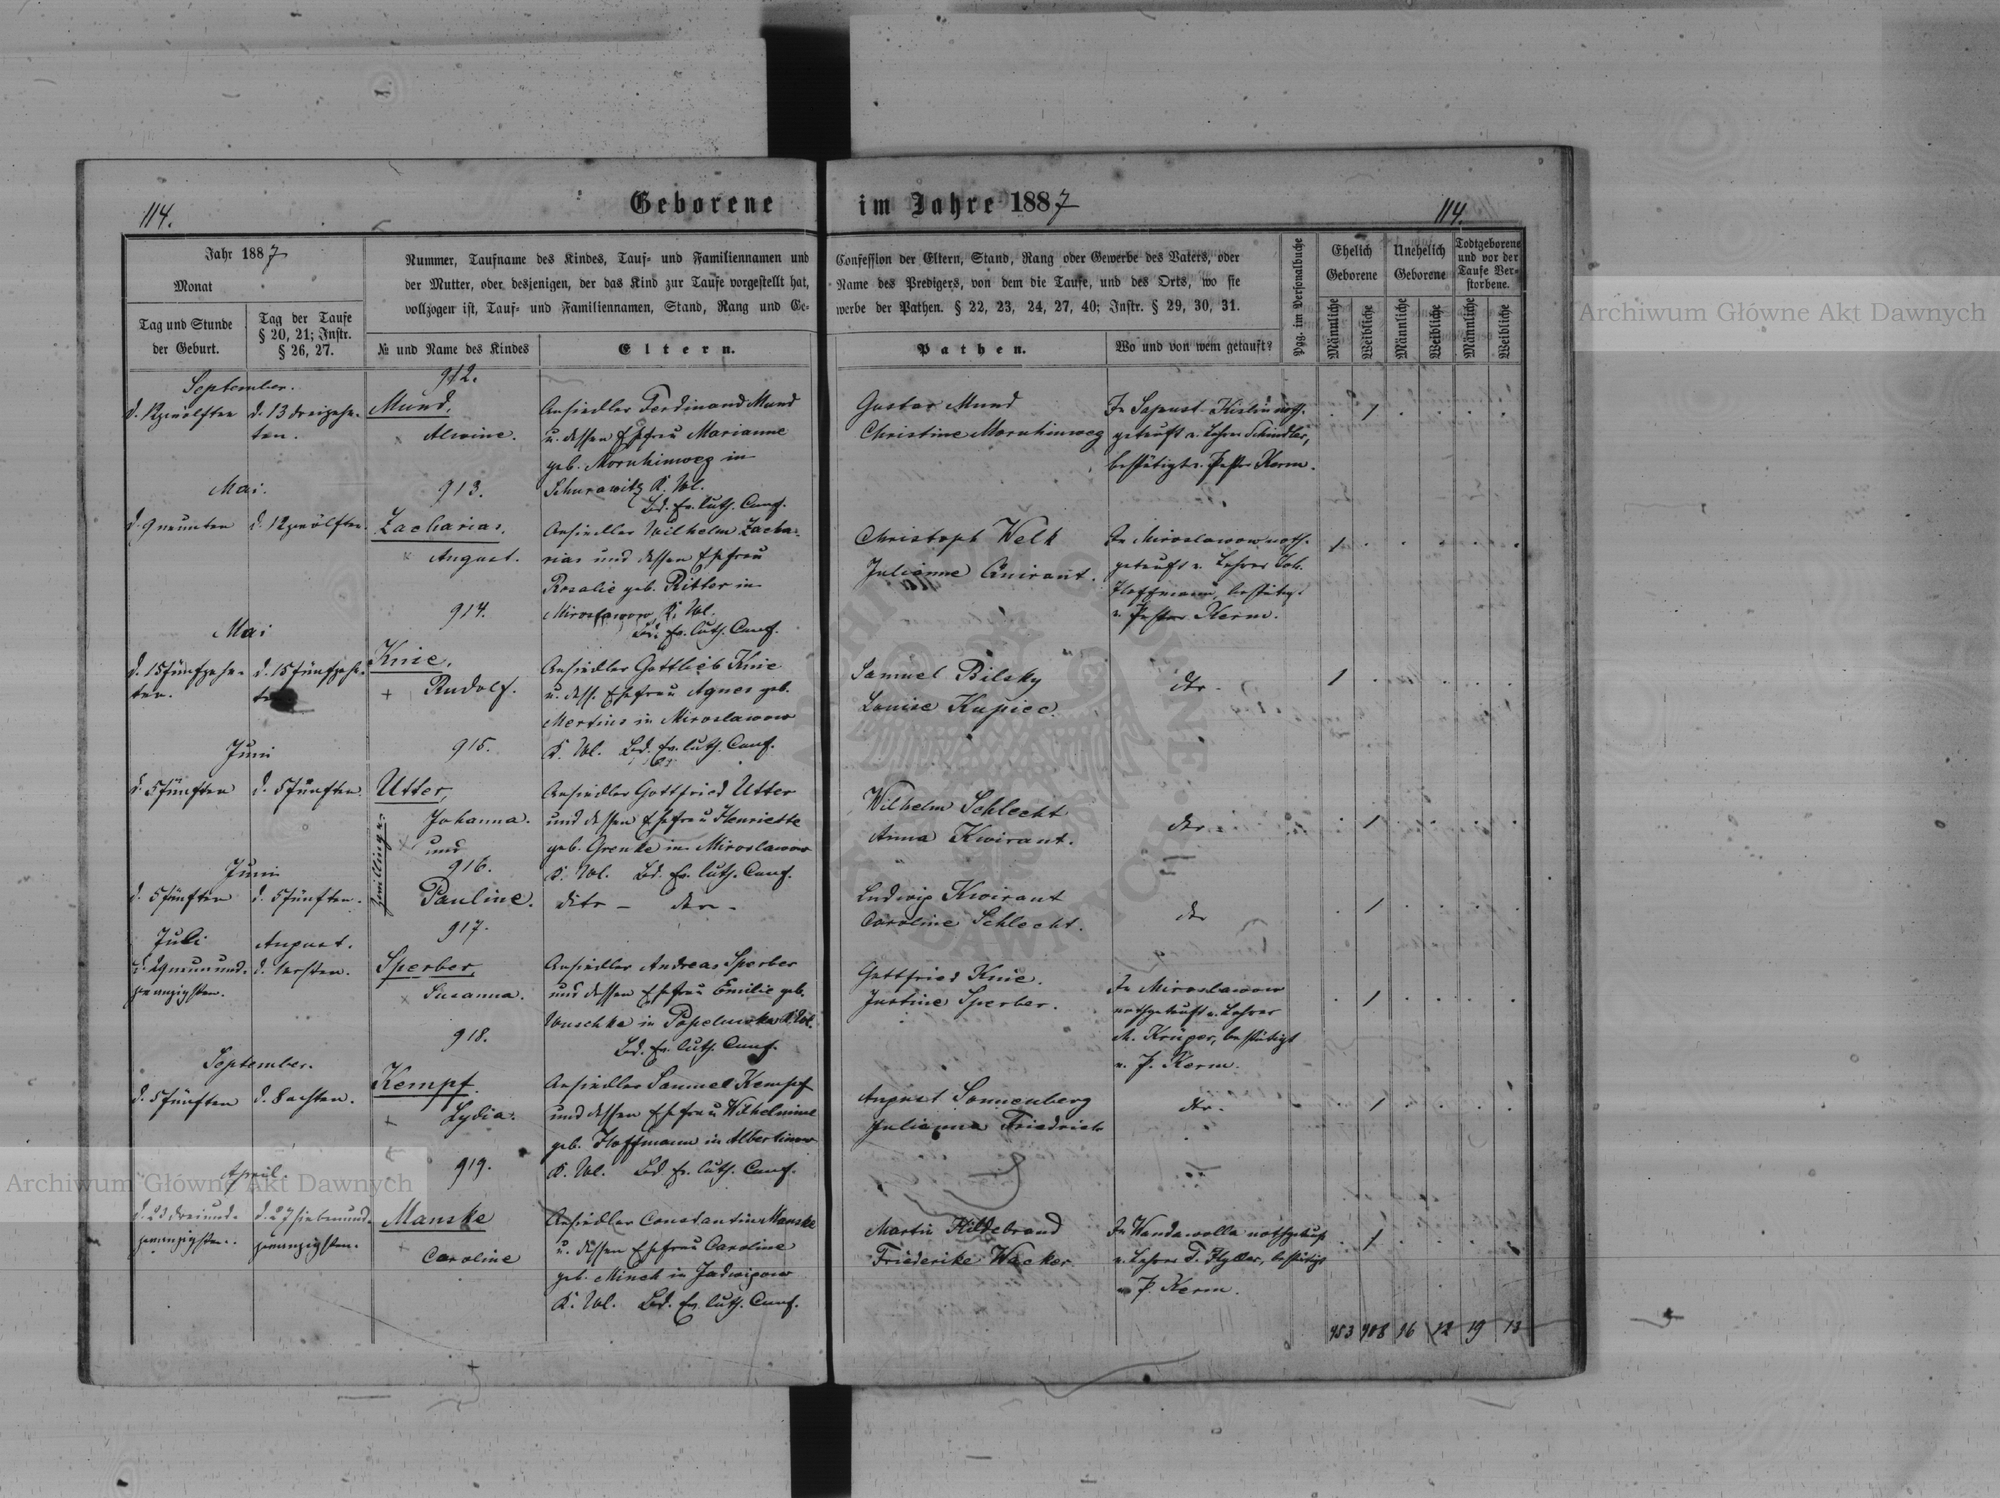 Geborene im Jahre 1887
114.
114.
Jahr 1887
Monat
Tag und Stunde
der Geburt.
Tag der Taufe
§ 20, 21; Instr.
§ 26, 27.
Nummer, Taufname des Kindes, Tauf- und Familiennamen und
der Mutter, oder desjenigen, der das Kind zur Taufe vorgestellt hat,
vollzogen ist, Tauf- und Familiennamen, Stand, Rang und Ge-
№ und Name des Kindes
Eltern.
Confession der Eltern, Stand, Rang oder Gewerbe des Vaters, oder
Name des Predigers, von dem die Taufe, und des Orts, wo sie
werbe der Pathen. § 22, 23, 24, 27, 40; Instr. § 29, 30, 31.
Pathen.
Wo und von wem getauft?
Pag. im Personalbuche
Ehelich
Geborene
Unehelich
Geborene
Todtgeborene
und vor der
Taufe Ver-
storbene.
Männliche
Weibliche
Männliche
Weibliche
Männliche
Weibliche
September.
d. 12 zwölften
d. 13 dreizehn-
ten.
912.
Mund,
Alwine.
Ansiedler Ferdinand Mund
u. dessen Ehefrau Marianne
geb. Mornhinweg in
Schurawitz K. Wl.
Bd. Ev. luth. Conf.
Gustav Mund
Christine Mornhinweg
getauft v. Lehrer Schindler,
bestätigt v. Pastor Kerm.
1
Mai.
d. 9 neunten
d. 12 zwölften.
913.
Zacharias,
August.
Ansiedler Wilhelm Zacha-
rias und dessen Ehefrau
Rosalie geb. Ritter in
Miroslawow K. Wl.
Bd. Ev. luth. Conf.
Christoph Welk
Julianne Quirant.
In Miroslawow noth-
getauft v. Lehrer Joh.
Hoffmann, bestätigt
v. Pastor Kerm.
1
Mai
d. 15 fünfzehn-
ten.
d. 15 fünfzehn-
914.
Knie,
Rudolf.
Ansiedler Gottlieb Knie
u. dess. Ehefrau Agnes geb.
Mertins in Miroslawow
K. Wl. Bd. Ev. luth. Conf.
Samuel Bilsky
Louise Kupiec.
dto.
1
Juni
d. 5 fünften
d. 5 fünften.
915.
Utter,
Johanna.
und
Zwillinge
Ansiedler Gottfried Utter
und dessen Ehefrau Henriette
geb. Grenke in Miroslawow
K. Wl. Bd. Ev. luth. Conf.
Wilhelm Schlecht
Anna Kwirant.
dto.
1
Juni
d. 5 fünften
d. 5 fünften.
916.
Pauline.
dito – dto –
Ludwig Kwirant
Caroline Schlecht.
dto
1
Juli
d. 29 neunund-
zwanzigsten.
August.
d. 1 ersten.
917.
Sperber,
Susanna.
Ansiedler Andreas Sperber
und dessen Ehefrau Emilie geb.
Wuschke in Popelucka K. Wl.
Bd. Ev. luth. Conf.
Gottfried Knie.
Justine Sperber.
In Miroslawow
nothgetauft v. Lehrer
M. Krüger, bestätigt
v. P. Kerm.
1
September.
d. 5 fünften
d. 8 achten.
918.
Kempf.
Lydia.
Ansiedler Samuel Kempf
und dessen Ehefrau Wilhelmine
geb. Hoffmann in Albertinow
K. Wl. Bd. Ev. luth. Conf.
August Sonnenberg
Julianna Friedrich
dto.
1
April.
d. 23 dreiund-
zwanzigsten.
d. 27 siebenund-
zwanzigsten.
919.
Manske
Caroline
Ansiedler Constantin Manske
u. dessen Ehefrau Caroline
geb. Minch in Jadwigow
K. Wl. Bd. Ev. luth. Conf.
Martin Hildebrand
Friederike Wacker
In Wandawolla nothgetauft
v. P. Kerm.
1
453 408 16 12 19 13
Archiwum Główne Akt Dawnych
Archiwum Główne Akt Dawnych